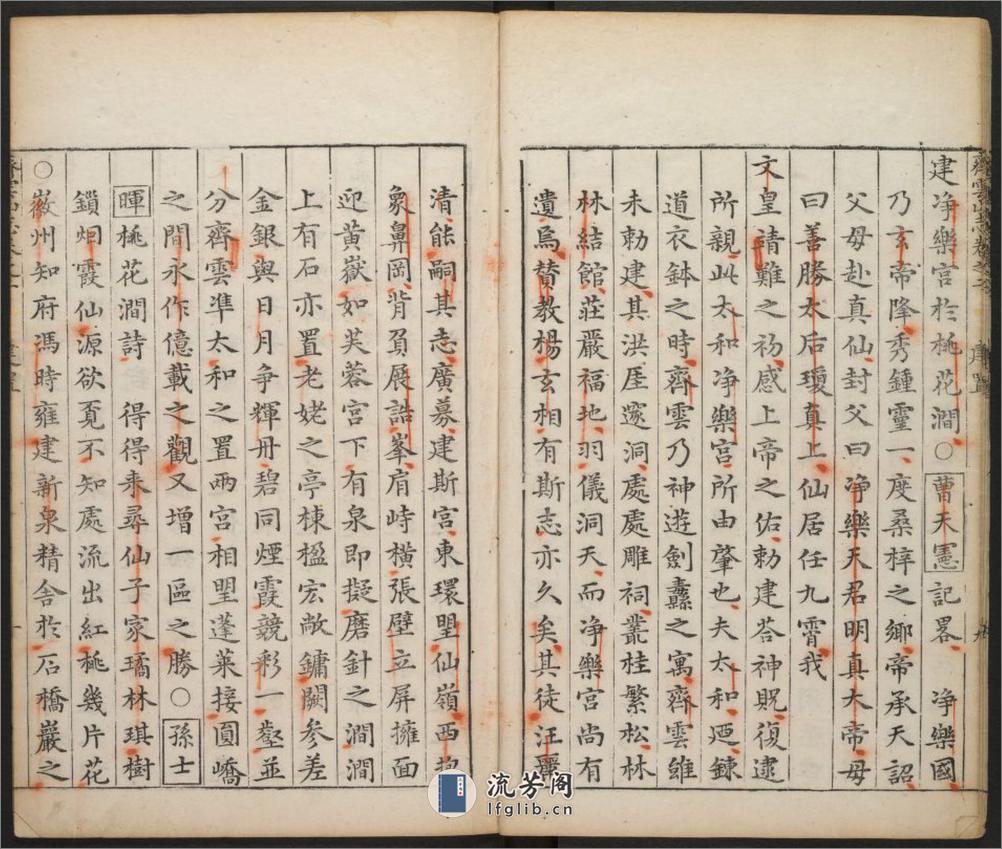 建净樂宮於桃花澗○曹天憲記畧　净樂國
乃玄帝降秀鍾靈一度桑梓之鄉帝承天詔
父母赴真仙封父曰净樂天君明真大帝母
曰善勝太后瓊真上仙居任九霄我
文皇靖難之初感上帝之佑勅建荅神貺復逮
所親此太和净樂宮所由肇也夫太和廼鍊
道衣鉢之時齊雲乃神遊劍纛之寓齊雲雖
未勅建其洪厓邃洞處處雕祠叢桂繁松林
林結館莊嚴福地羽儀洞天而净樂宮尚有
遺焉賛教楊玄相有斯志亦久矣其徒汪麗
清能嗣其志廣募建斯宮東環望仙嶺西抱
象鼻岡背負展誥峯肩峙橫張壁立屏擁面
迎黄嶽如芙蓉宮下有泉即擬磨針之澗澗
上有石亦置老姥之亭棟楹宏敞鏞闕參差
金銀與日月争輝丹碧同煙霞競彩一壑並
分齊雲準太和之置兩宮相望蓬萊接圓嶠
之間永作億載之觀又增一區之勝○孫士
暉桃花澗詩　得得來尋仙子家璚林琪樹
鎖烟霞仙源欲覔不知處流出紅桃幾片花
○徽州知府馮時雍建新泉精舍於石橋巖之
流芳阁
lfglib.cn